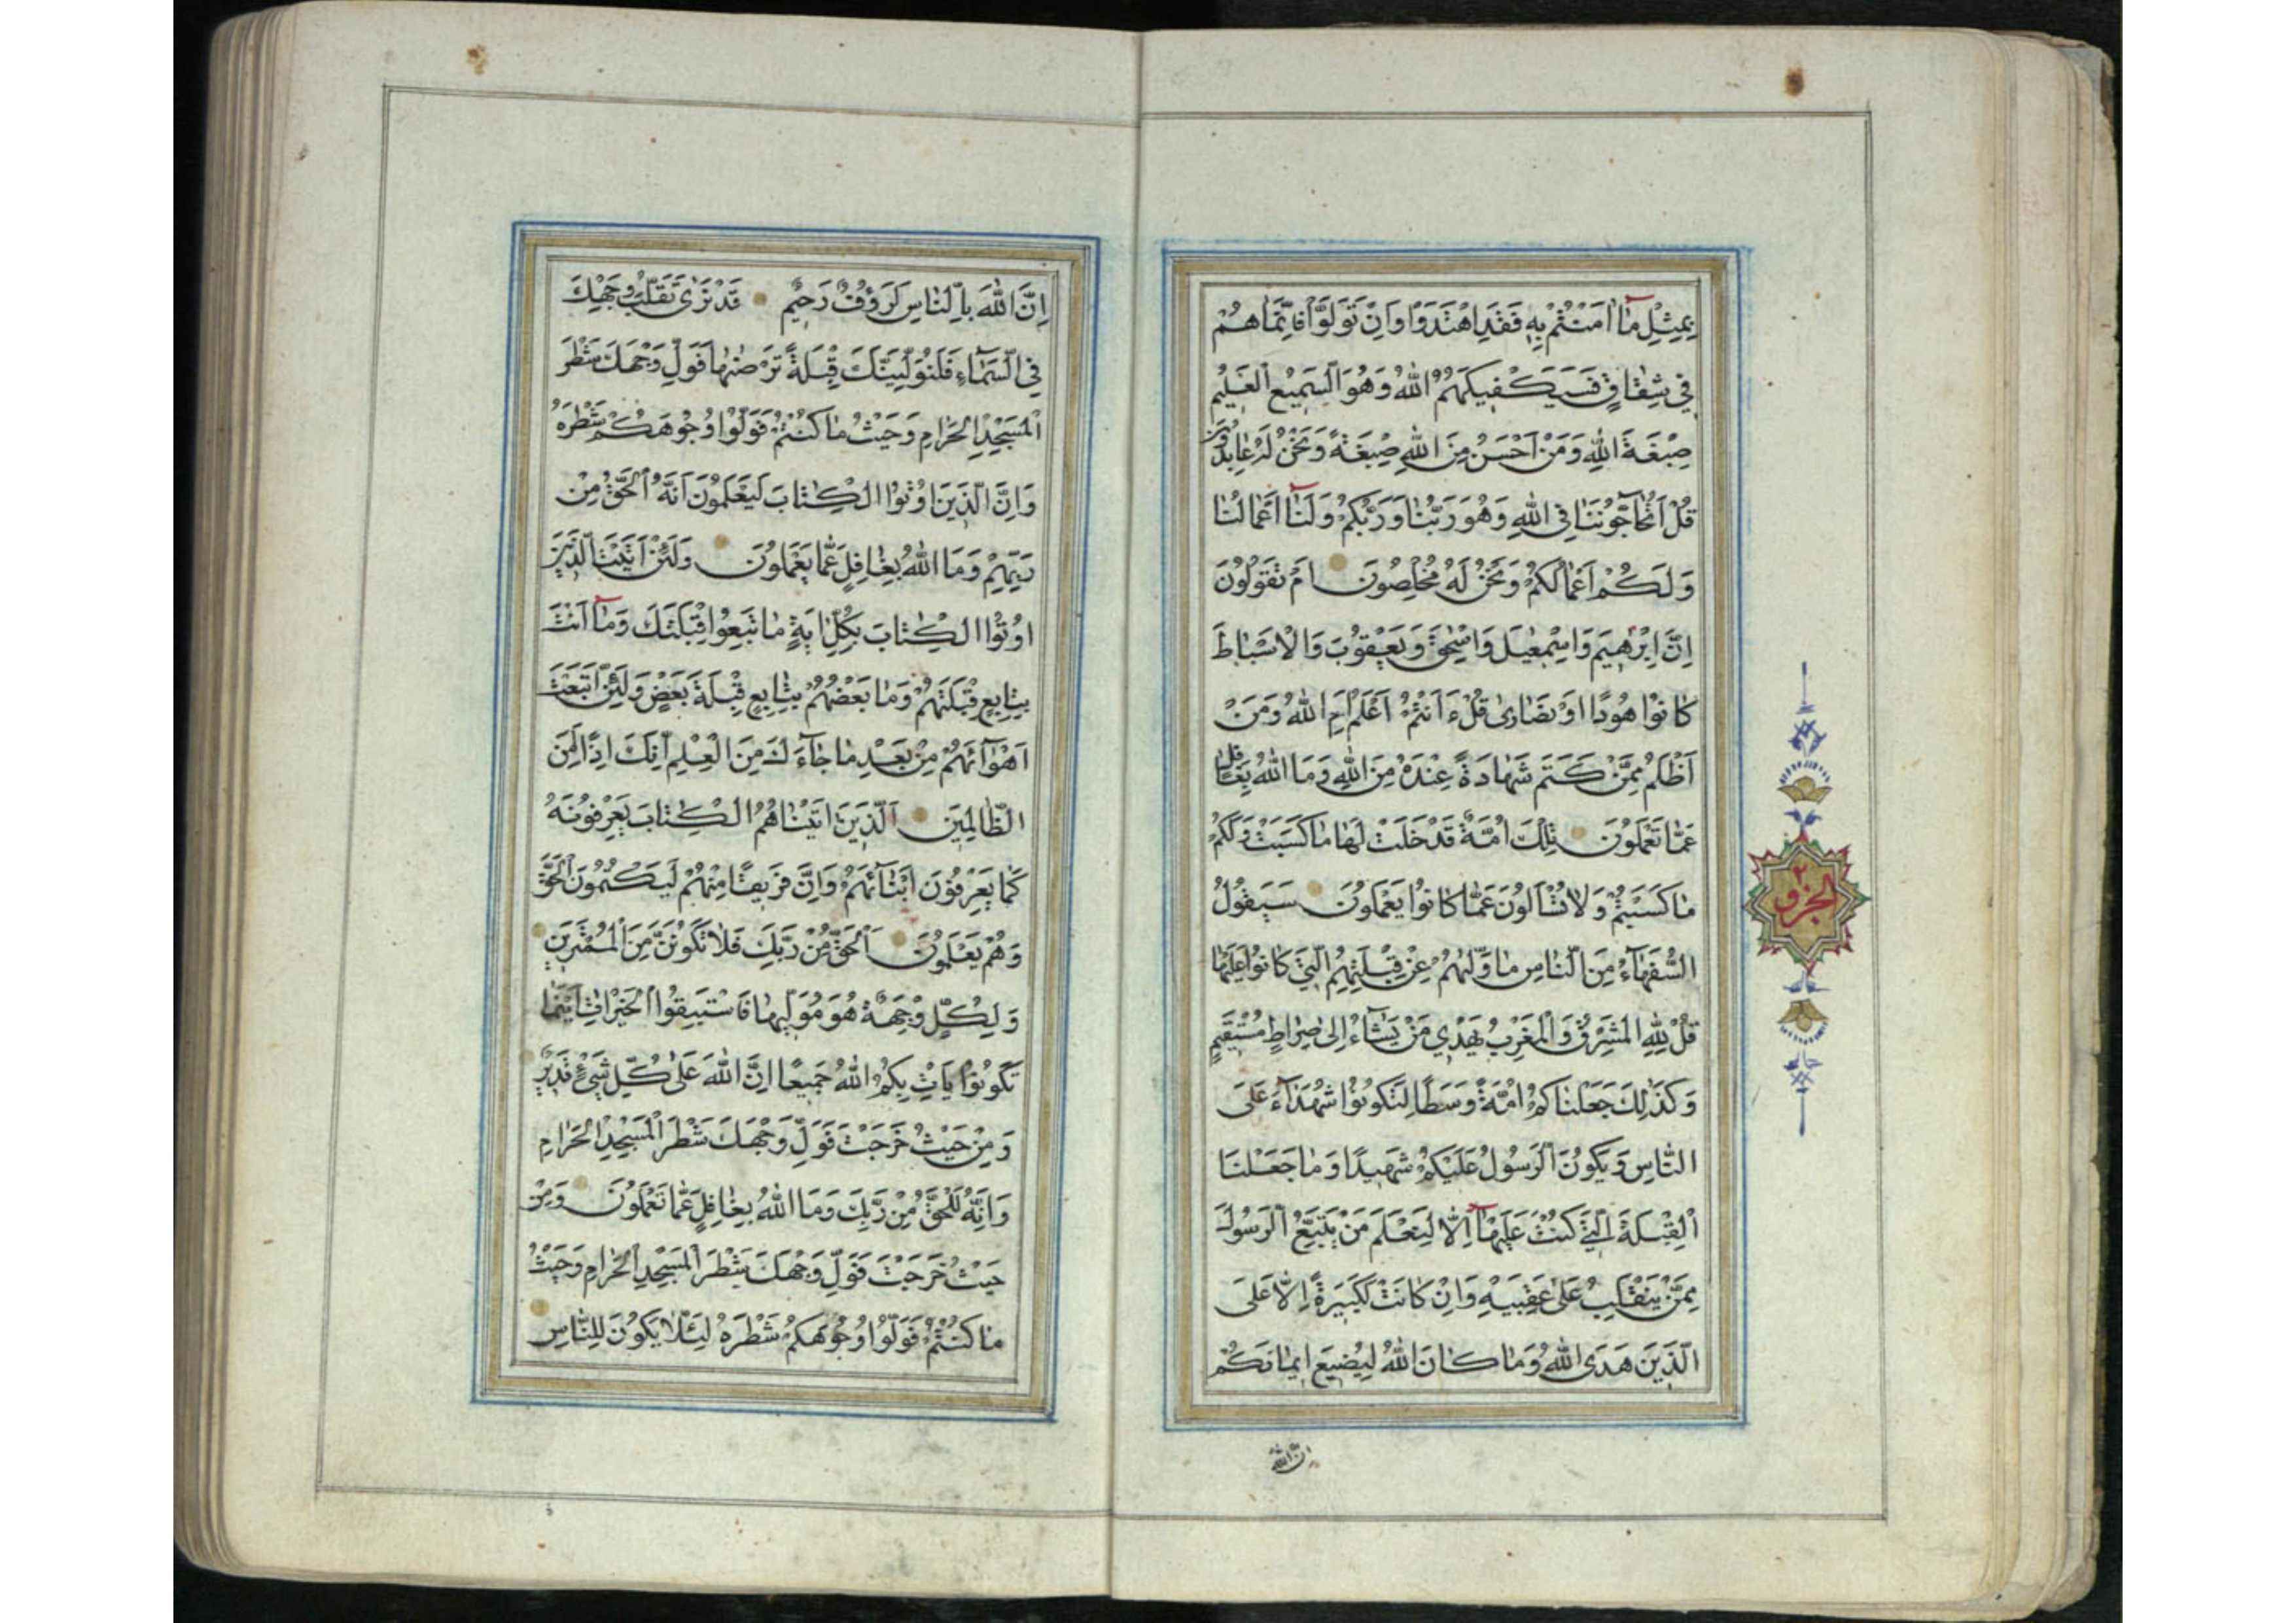 بِمِثْلِ مَا اٰمَنْتُمْ بِهِ فَقَدِ اهْتَدَوْا وَاِنْ تَوَلَّوْا فَاِنَّمَا هُمْ
فِي شِقَاقٍ فَسَيَكْفِيكَهُمُ اللهُ وَهُوَ السَّمِيعُ الْعَلِيمُ
صِبْغَةَ اللهِ وَمَنْ اَحْسَنُ مِنَ اللهِ صِبْغَةً وَنَحْنُ لَهُ عَابِدُونَ
قُلْ اَتُحَاجُّونَنَا فِي اللهِ وَهُوَ رَبُّنَا وَرَبُّكُمْ وَلَنَا اَعْمَالُنَا
وَلَكُمْ اَعْمَالُكُمْ وَنَحْنُ لَهُ مُخْلِصُونَ اَمْ تَقُولُونَ
اِنَّ اِبْرٰهِيمَ وَاِسْمٰعِيلَ وَاِسْحٰقَ وَيَعْقُوبَ وَالْاَسْبَاطَ
كَانُوا هُودًا اَوْ نَصَارٰى قُلْ ءَاَنْتُمْ اَعْلَمُ اَمِ اللهُ وَمَنْ
اَظْلَمُ مِمَّنْ كَتَمَ شَهَادَةً عِنْدَهُ مِنَ اللهِ وَمَا اللهُ بِغَافِلٍ
عَمَّا تَعْمَلُونَ تِلْكَ اُمَّةٌ قَدْ خَلَتْ لَهَا مَا كَسَبَتْ وَلَكُمْ
مَا كَسَبْتُمْ وَلَا تُسْأَلُونَ عَمَّا كَانُوا يَعْمَلُونَ سَيَقُولُ
السُّفَهَاءُ مِنَ النَّاسِ مَا وَلّٰهُمْ عَنْ قِبْلَتِهِمُ الَّتِي كَانُوا عَلَيْهَا
قُلْ لِلّٰهِ الْمَشْرِقُ وَالْمَغْرِبُ يَهْدِي مَنْ يَشَاءُ اِلٰى صِرَاطٍ مُسْتَقِيمٍ
وَكَذٰلِكَ جَعَلْنَاكُمْ اُمَّةً وَسَطًا لِتَكُونُوا شُهَدَاءَ عَلَى
النَّاسِ وَيَكُونَ الرَّسُولُ عَلَيْكُمْ شَهِيدًا وَمَا جَعَلْنَا
الْقِبْلَةَ الَّتِي كُنْتَ عَلَيْهَا اِلَّا لِنَعْلَمَ مَنْ يَتَّبِعُ الرَّسُولَ
مِمَّنْ يَنْقَلِبُ عَلٰى عَقِبَيْهِ وَاِنْ كَانَتْ لَكَبِيرَةً اِلَّا عَلَى
الَّذِينَ هَدَى اللهُ وَمَا كَانَ اللهُ لِيُضِيعَ اِيمَانَكُمْ
اِنَّ الله
الجزو
٢
اِنَّ اللهَ بِالنَّاسِ لَرَؤُفٌ رَحِيمٌ قَدْ نَرٰى تَقَلُّبَ وَجْهِكَ
فِي السَّمَاءِ فَلَنُوَلِّيَنَّكَ قِبْلَةً تَرْضٰيهَا فَوَلِّ وَجْهَكَ شَطْرَ
الْمَسْجِدِ الْحَرَامِ وَحَيْثُ مَا كُنْتُمْ فَوَلُّوا وُجُوهَكُمْ شَطْرَهُ
وَاِنَّ الَّذِينَ اُوتُوا الْكِتَابَ لَيَعْلَمُونَ اَنَّهُ الْحَقُّ مِنْ
رَبِّهِمْ وَمَا اللهُ بِغَافِلٍ عَمَّا يَعْمَلُونَ وَلَئِنْ اَتَيْتَ الَّذِينَ
اُوتُوا الْكِتَابَ بِكُلِّ اٰيَةٍ مَا تَبِعُوا قِبْلَتَكَ وَمَا اَنْتَ
بِتَابِعٍ قِبْلَتَهُمْ وَمَا بَعْضُهُمْ بِتَابِعٍ قِبْلَةَ بَعْضٍ وَلَئِنْ اتَّبَعْتَ
اَهْوَائَهُمْ مِنْ بَعْدِ مَا جَاءَكَ مِنَ الْعِلْمِ اِنَّكَ اِذًا لَمِنَ
الظَّالِمِينَ اَلَّذِينَ اٰتَيْنَاهُمُ الْكِتَابَ يَعْرِفُونَهُ
كَمَا يَعْرِفُونَ اَبْنَائَهُمْ وَاِنَّ فَرِيقًا مِنْهُمْ لَيَكْتُمُونَ الْحَقَّ
وَهُمْ يَعْلَمُونَ اَلْحَقُّ مِنْ رَبِّكَ فَلَا تَكُونَنَّ مِنَ الْمُمْتَرِينَ
وَلِكُلٍّ وِجْهَةٌ هُوَ مُوَلِّيهَا فَاسْتَبِقُوا الْخَيْرَاتِ اَيْنَمَا
تَكُونُوا يَاْتِ بِكُمُ اللهُ جَمِيعًا اِنَّ اللهَ عَلٰى كُلِّ شَيْءٍ قَدِيرٌ
وَمِنْ حَيْثُ خَرَجْتَ فَوَلِّ وَجْهَكَ شَطْرَ الْمَسْجِدِ الْحَرَامِ
وَاِنَّهُ لَلْحَقُّ مِنْ رَبِّكَ وَمَا اللهُ بِغَافِلٍ عَمَّا تَعْمَلُونَ وَمِنْ
حَيْثُ خَرَجْتَ فَوَلِّ وَجْهَكَ شَطْرَ الْمَسْجِدِ الْحَرَامِ وَحَيْثُ
مَا كُنْتُمْ فَوَلُّوا وُجُوهَكُمْ شَطْرَهُ لِئَلَّا يَكُونَ لِلنَّاسِ